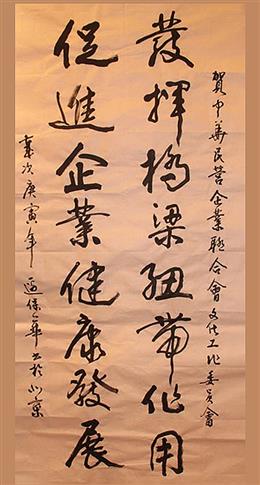 賀中華民营企業聯合會文化工作委員會
發揮橋梁紐帶作用
促進企業健康發展
歲次庚寅年 逯保華书於北京